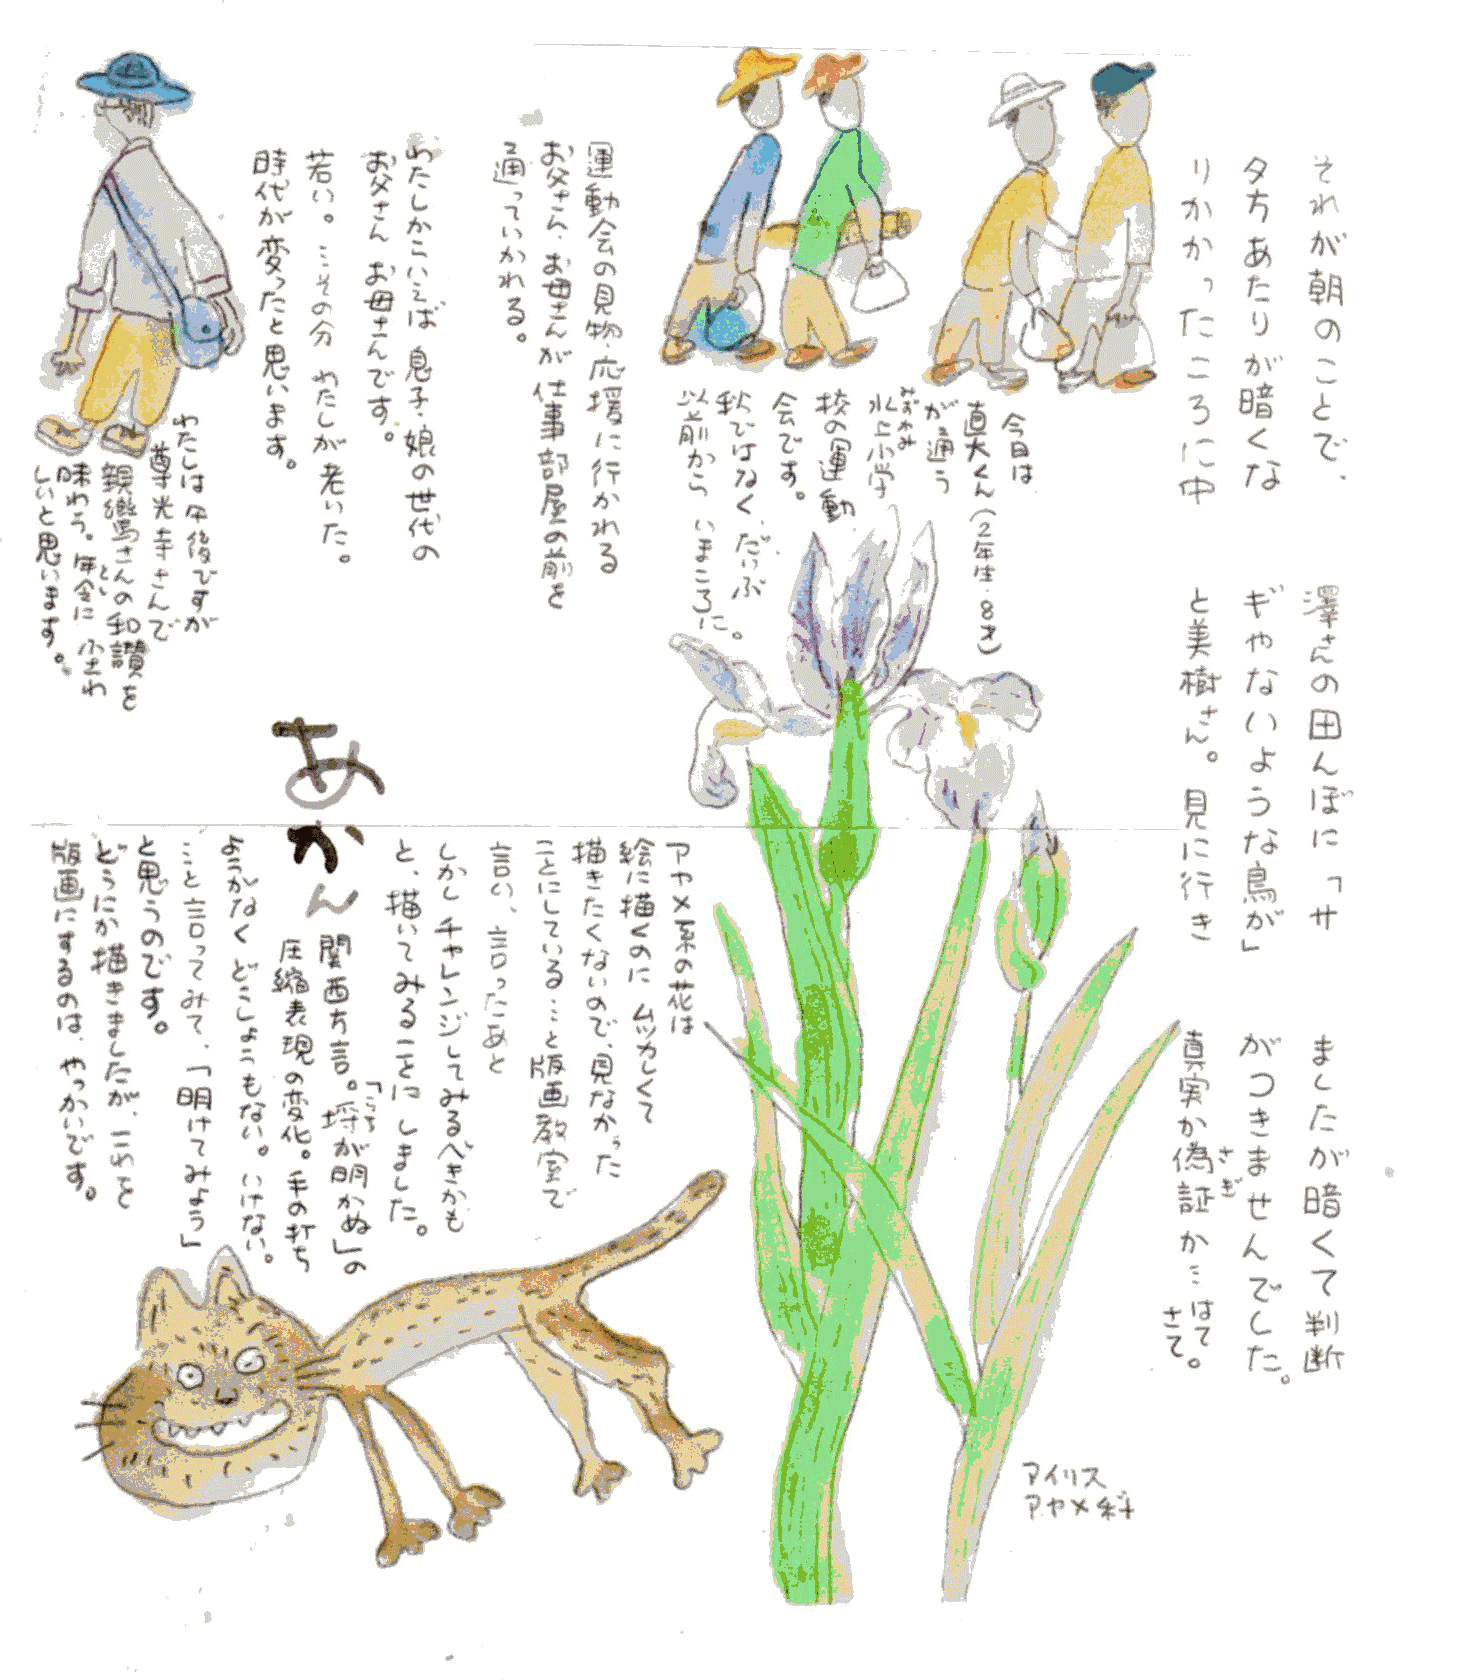 それが朝のことで、
夕方あたりが暗くな
りかかったころに中
澤さんの田んぼに「サ
ギやないような鳥が」
と美樹さん。見に行き
ましたが暗くて判断
がつきませんでした。
真実か偽証か…はて
さぎ
さて。
今日は
直大くん(2年生・8才)
が通う
水上小学
みずかみ
校の運動
会です。
秋ではなく、だいぶ
以前から いまころに。
運動会の見物・応援に行かれる
お父さん、お母さんが仕事部屋の前を
通っていかれる。
わたしからいえば息子・娘の世代の
お父さん お母さんです。
若い。…その分 わたしが老いた。
時代が変ったと思います。
わたしは午後ですが
尊光寺さんで
親鸞さんの和讃を
味わう。年令に ふさわ
とし
しいと思います。
アヤメ系の花は
絵に描くのに ムツカしくて
描きたくないので、見なかった
ことにしている…と版画教室で
言い、言ったあと
しかしチャレンジしてみるべきかも
と、描いてみることにしました。
あかん
関西方言。「埒が明かぬ」の
らち
圧縮表現の変化。手の打ち
ようがなくどこしょうもない。いけない。
…と言ってみて、「明けてみよう」
と思うのです。
どうにか描きましたが、これを
版画にするのは、やっかいです。
アイリス
アヤメ科